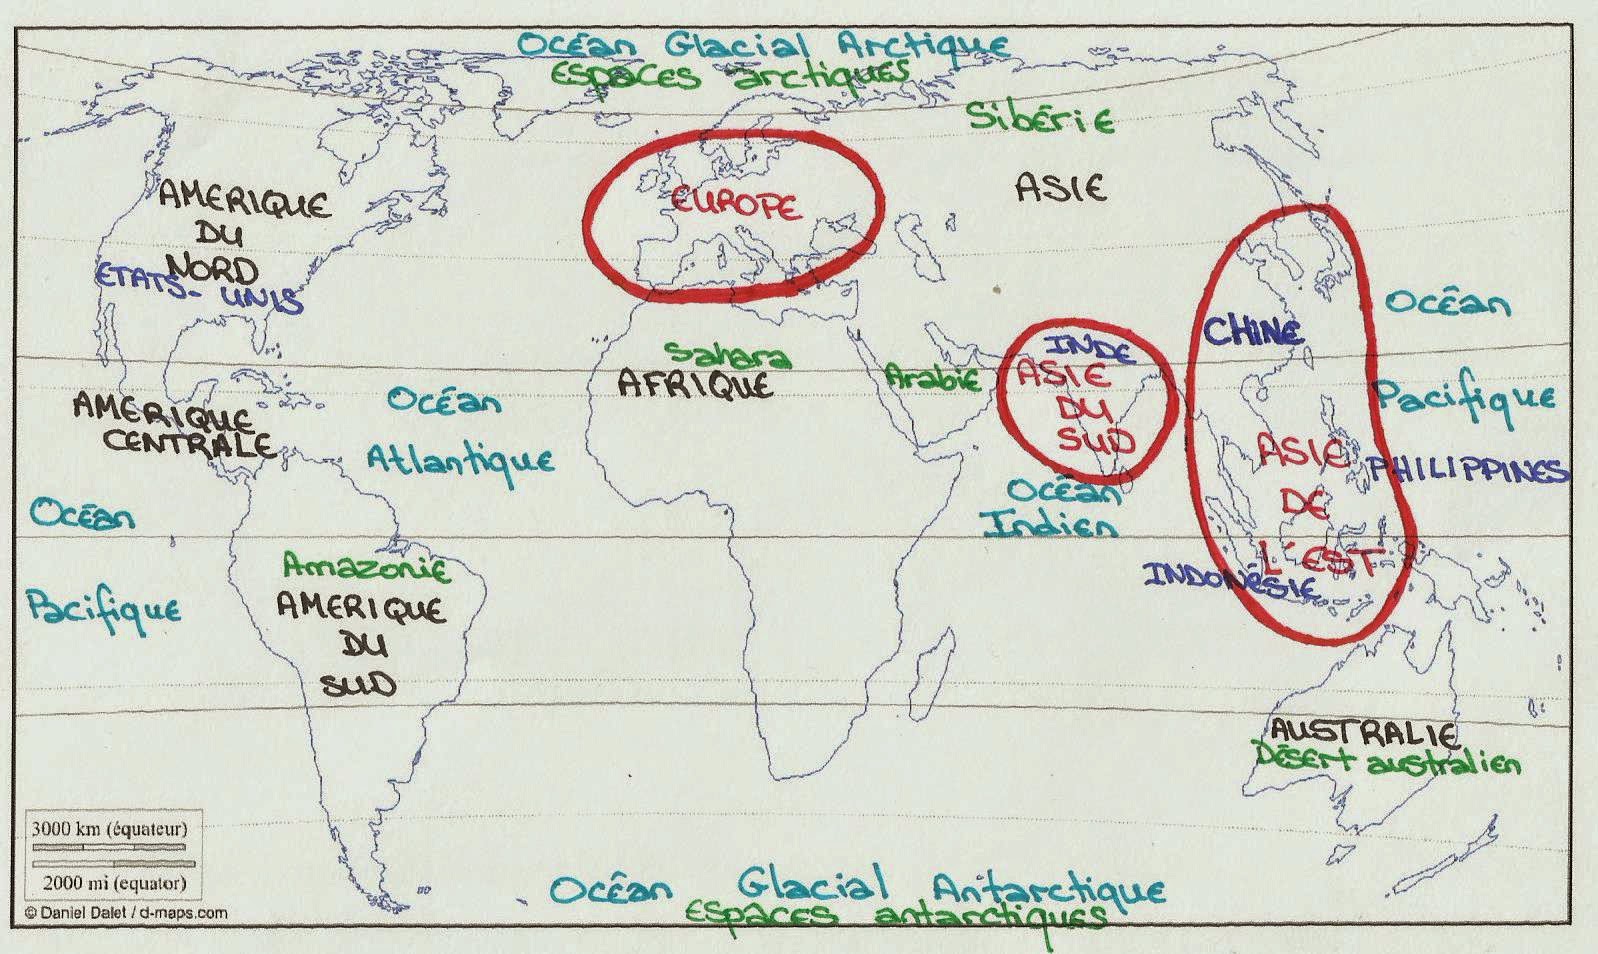 Océan Glacial Arctique
Espaces arctiques
Sibérie
ASIE
EUROPE
AMERIQUE
DU
NORD
ETATS-UNIS
AMERIQUE
CENTRALE
Océan
Atlantique
Sahara
AFRIQUE
Arabie
INDE
ASIE
DU
SUD
Océan
Indien
CHINE
Océan
Pacifique
PHILIPPINES
ASIE
DE
L'EST
INDONÉSIE
Océan
Pacifique
Amazonie
AMERIQUE
DU
SUD
AUSTRALIE
Désert australien
3000 km (équateur)
2000 mi (equator)
© Daniel Dalet / d-maps.com
Océan Glacial Antarctique
Espaces antarctiques